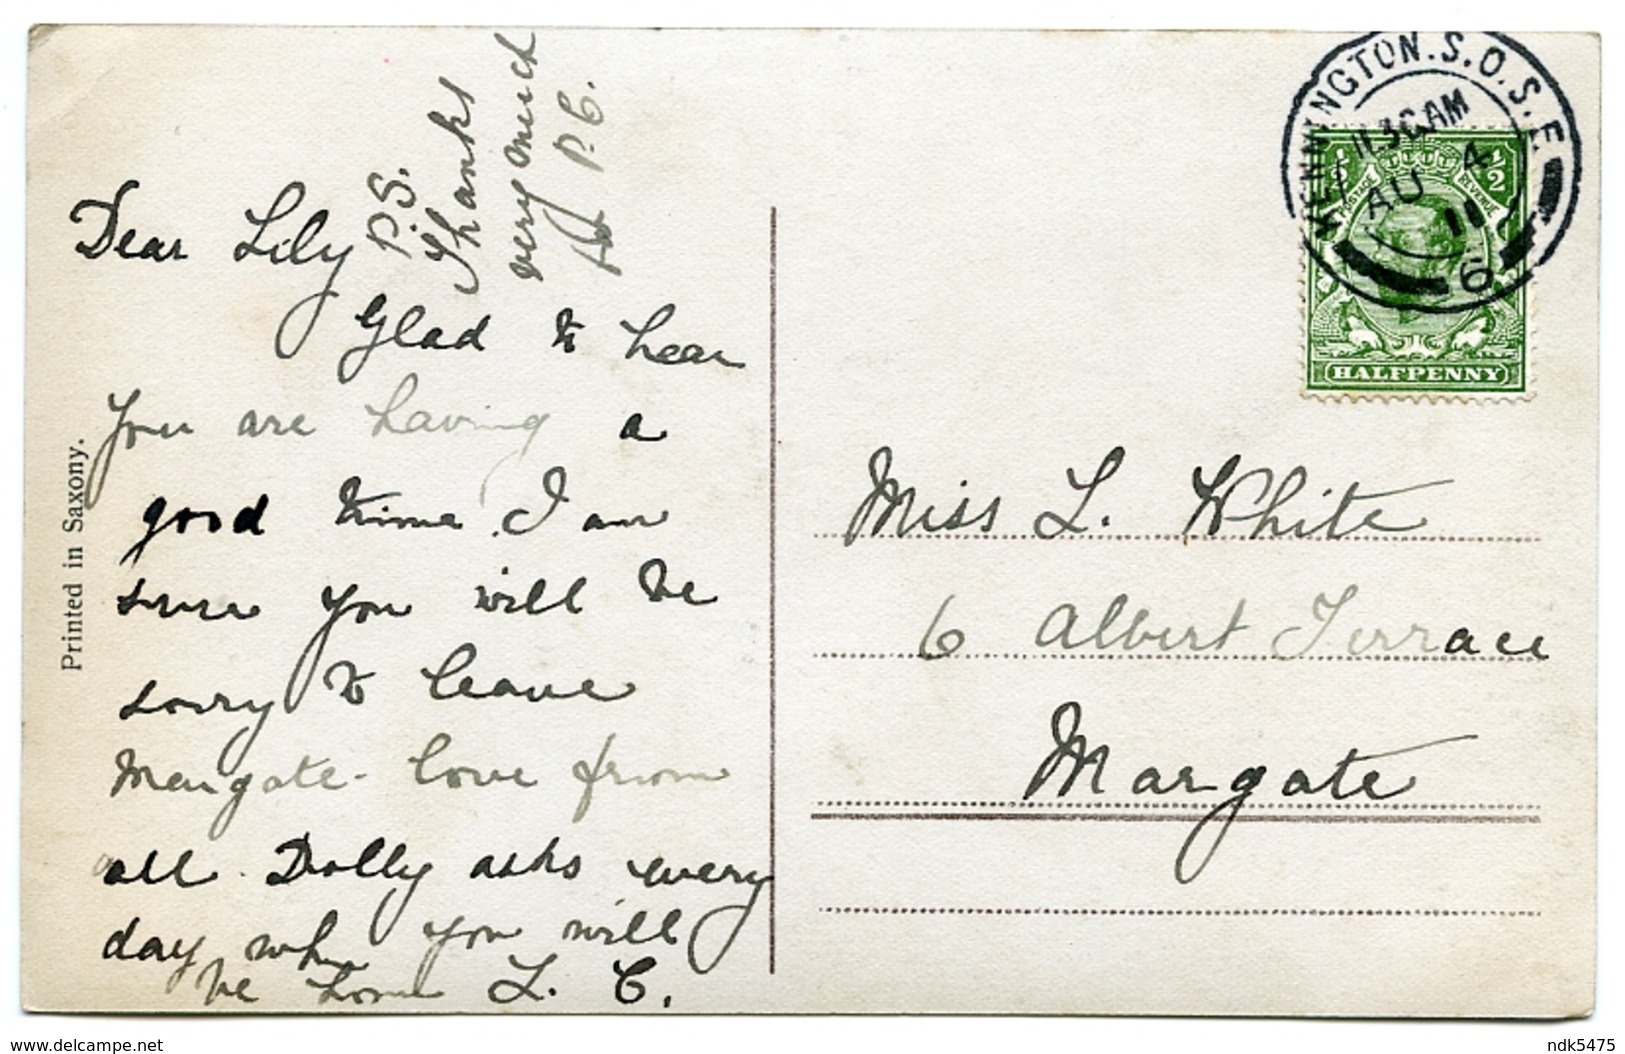 Dear Lily
Glad to hear
you are having a
good time. I am
sure you will be
sorry to leave
Margate - love from
all. Dolly asks every
day when you will
be home L. C.
P.S.
Thanks
very much
for P.C.
Printed in Saxony.
KENNINGTON.S.O.S.E
11.30AM
AU 4
11
6
1/2 1/2
POSTAGE REVENUE
HALFPENNY
Miss L. White
6 Albert Terrace
Margate
www.delcampe.net
ndk5475